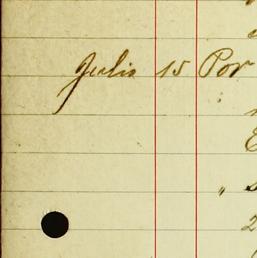 Julio 15 Por
"
2